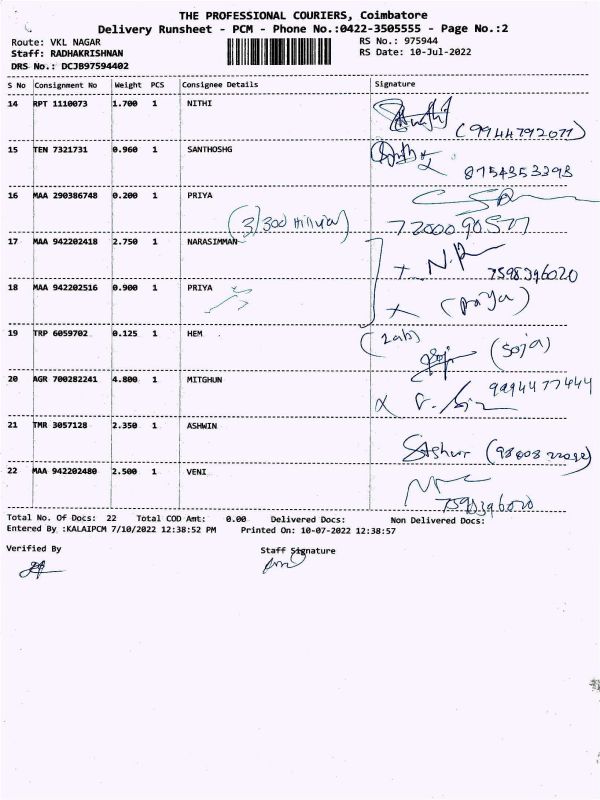 THE PROFESSIONAL COURIERS, Coimbatore
Delivery Runsheet - PCM - Phone No.:0422-3505555 - Page No.:2
Route: VKL NAGAR RS No.: 975944
Staff: RADHAKRISHNAN RS Date: 10-Jul-2022
DRS No.: DCJB97594402
S No Consignment No Weight PCS Consignee Details Signature
14 RPT 1110073 1.700 1 NITHI
(9944792071)
15 TEN 7321731 0.960 1 SANTHOSHG
8754353398
16 MAA 290386748 0.200 1 PRIYA
(3/300
17 MAA 942202418 2.750 1 NARASIMMAN
7598396020
18 MAA 942202516 0.900 1 PRIYA
(priya)
19 TRP 6059702 0.125 1 HEM
(Soja)
20 AGR 700282241 4.800 1 MITGHUN 9994477444
21 TMR 3057128 2.350 1 ASHWIN
22 MAA 942202480 2.500 1 VENI
7598396020
Total No. Of Docs: 22 Total COD Amt: 0.00 Delivered Docs: Non Delivered Docs:
Entered By :KALAIPCM 7/10/2022 12:38:52 PM Printed On: 10-07-2022 12:38:57
Verified By Staff Signature